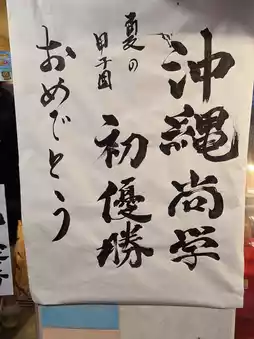 沖縄尚学
夏の
甲子園
初優勝
おめでとう